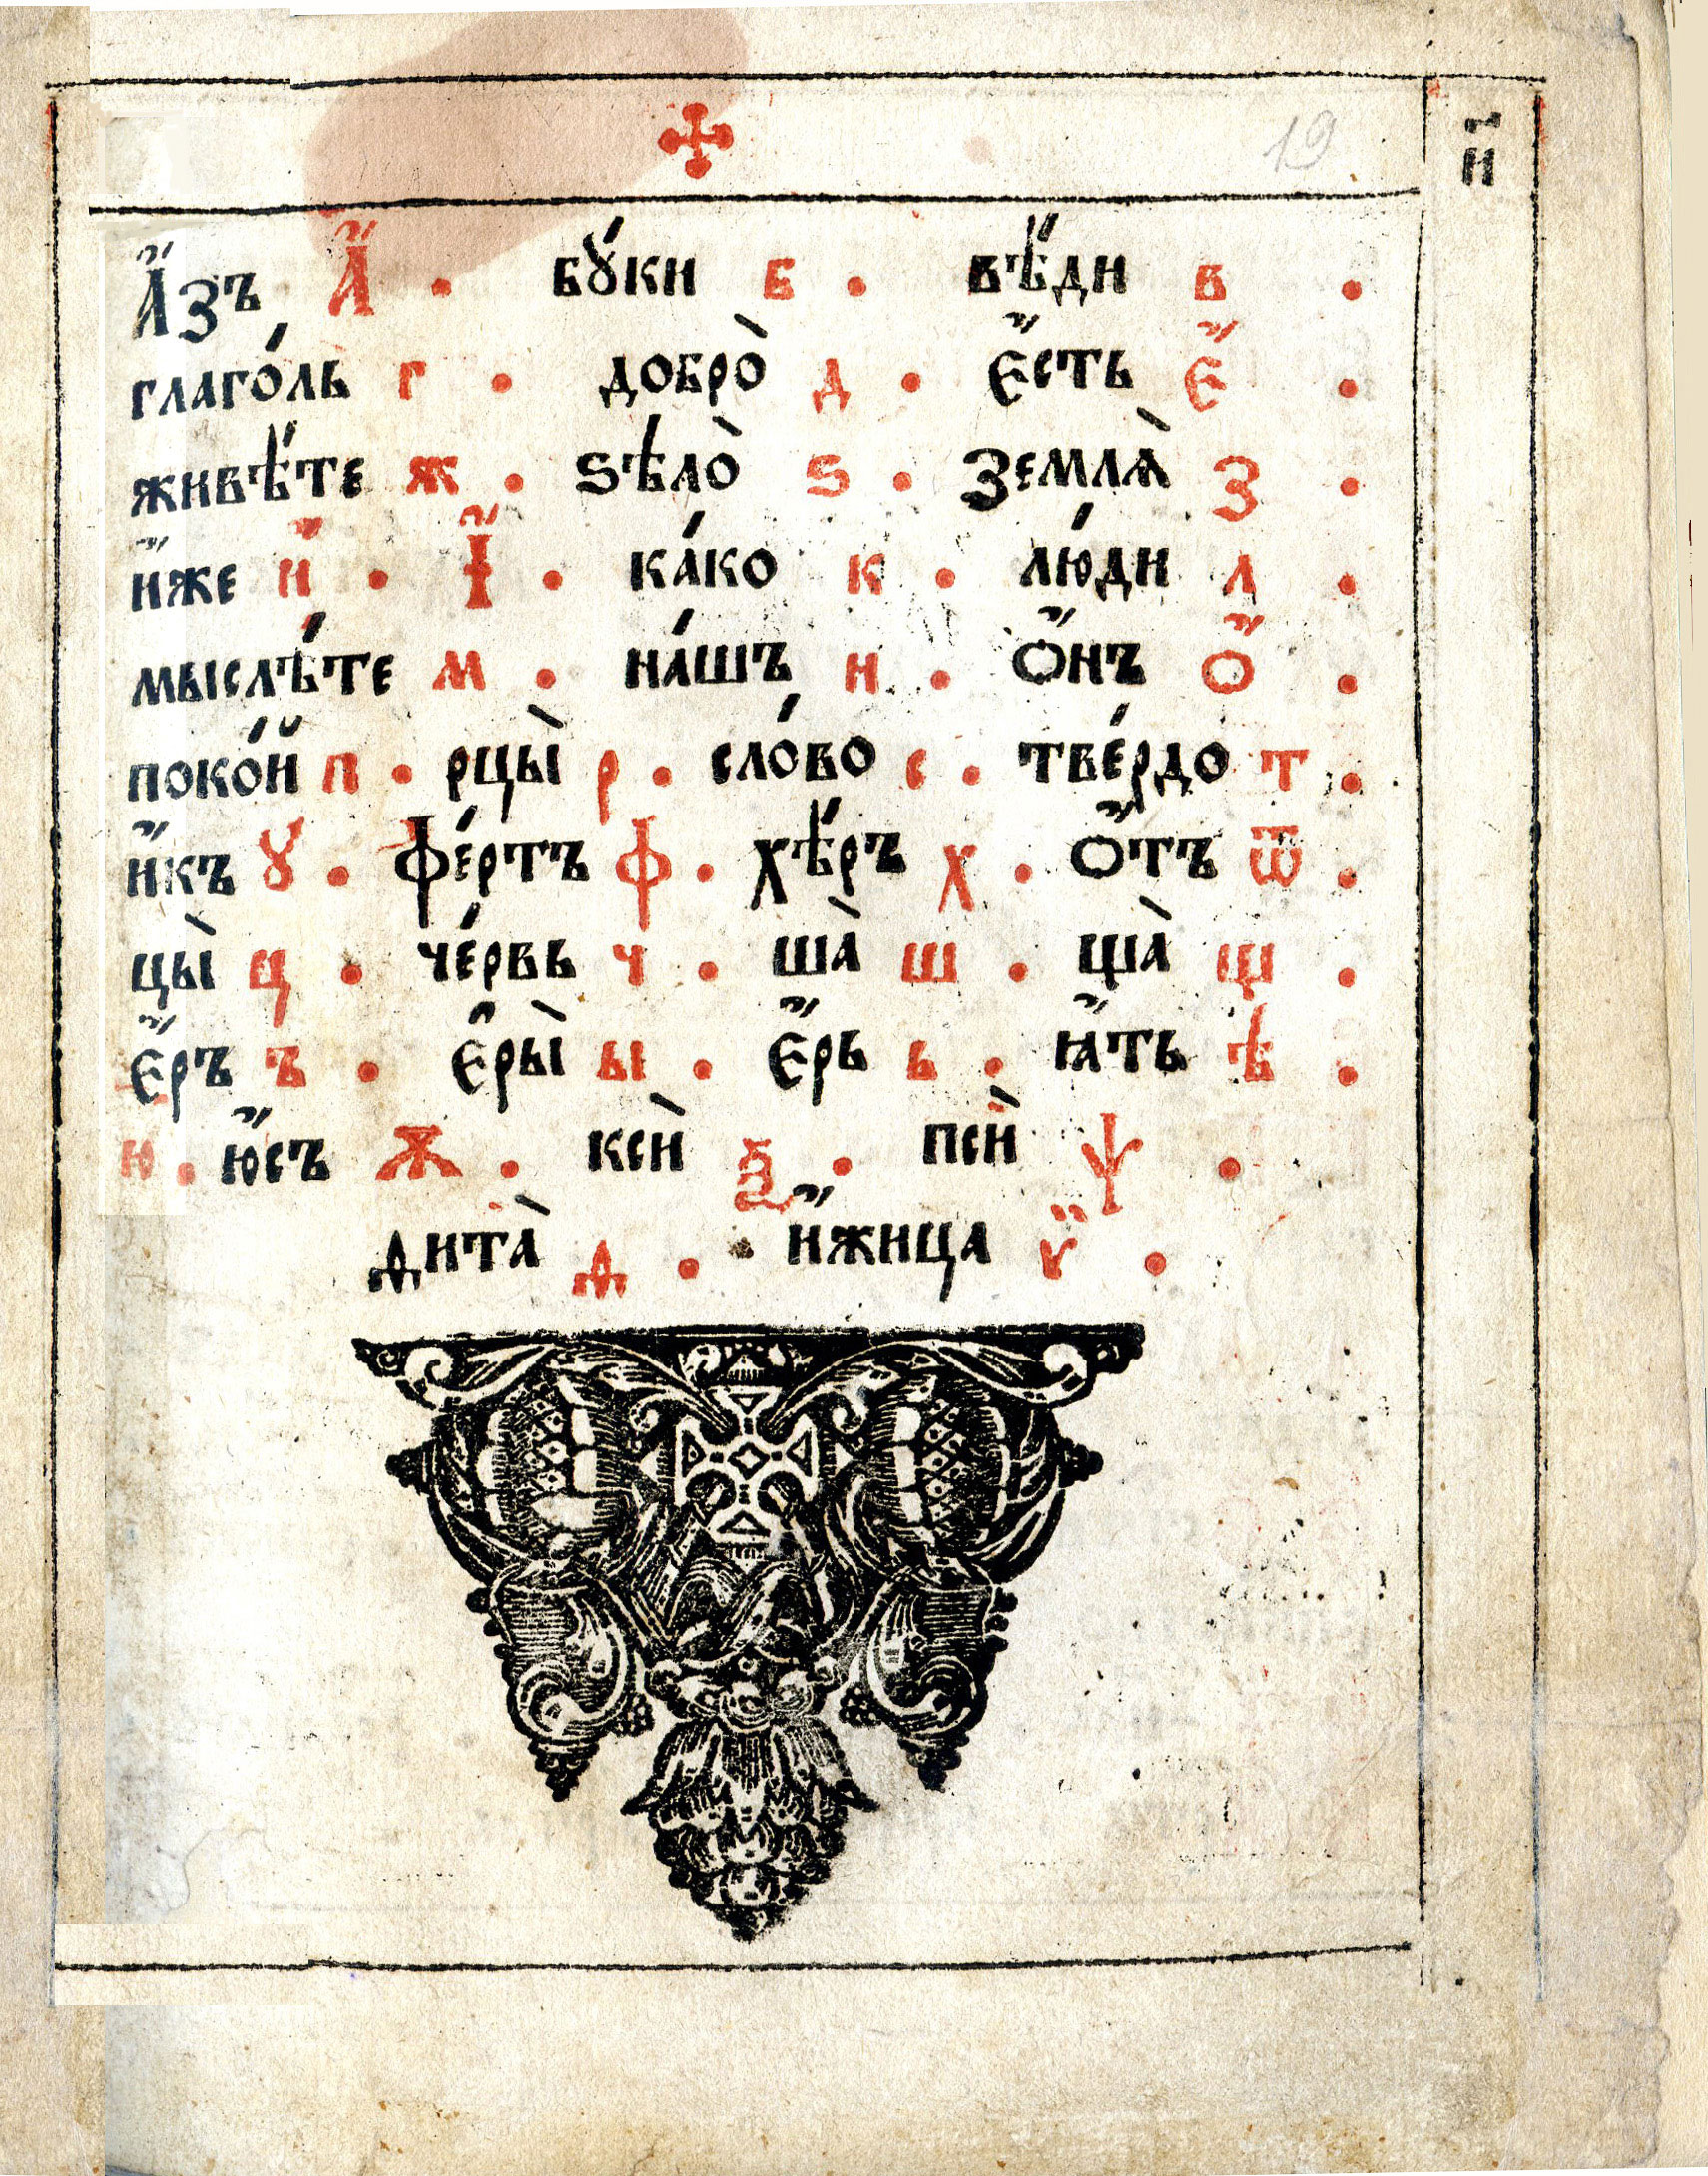 19
и҃
А҆́зъ А҆́ . бꙋ́ки б . вѣ́ди в .
глаго́ль г . добро̀ д . є҆́сть є҆́ .
живѣ́те ж . ѕѣло̀ ѕ . землѧ̀ з .
и҆́же й . І҆̃ . ка́ко к . лю́ди л .
мыслѣ́те м . на́шъ н . ѻ҆́нъ ѻ҆́ .
поко́й п . рцы̀ р . сло́во с . тве́рдо т .
и҆́къ ꙋ . фе́ртъ ф . хѣ́ръ х . ѻ҆́тъ ѿ .
цы̀ ц . че́рвь ч . ша̀ ш . ща̀ щ .
є҆́ръ ъ . є҆ры̀ ы . є҆́рь ь . ꙗ҆́ть ѣ .
ю . ю҆́съ ѫ . ксѝ ѯ . псѝ ѱ .
ѳита̀ ѳ . и҆́жица ѷ .